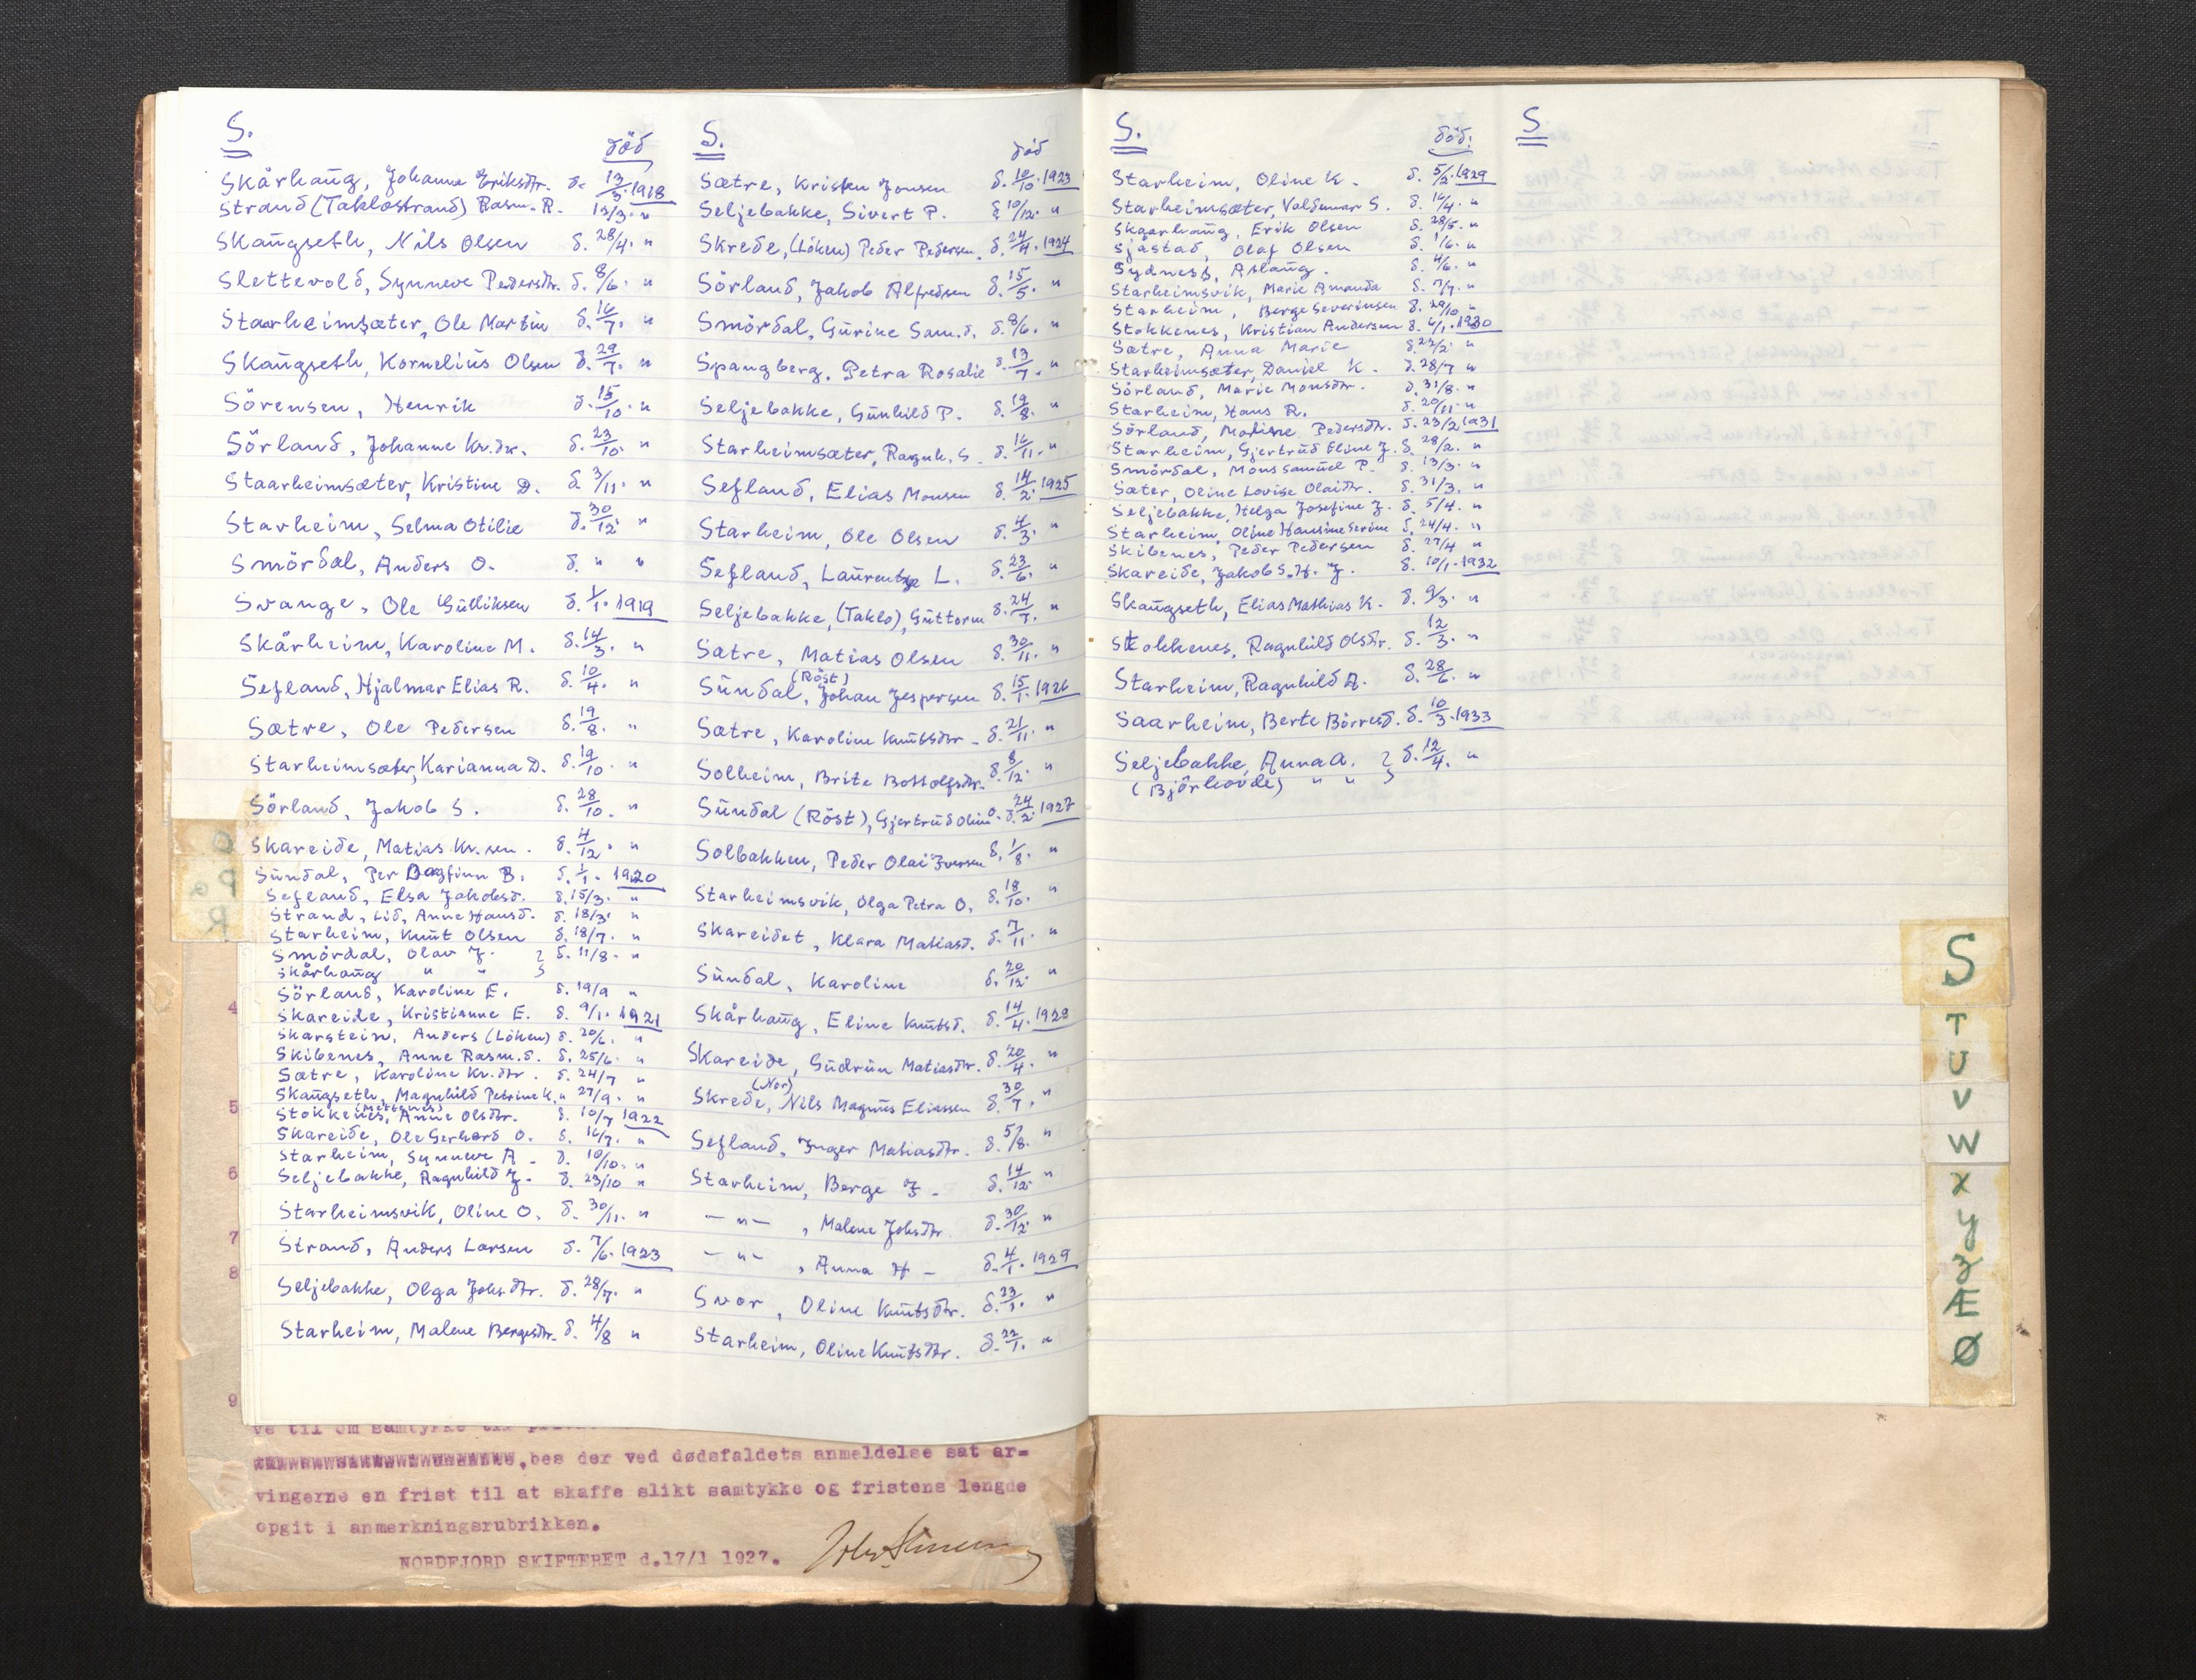 S.
död
Skårhaug, Johanne Eriksdtr. d. 13/3. 1918
Strand (Taklostrand) Rasm. R. 13/3. "
Skaugseth, Nils Olsen d. 28/4. "
Slettevold, Synneve Pedersdtr. d. 8/6. "
Staarheimsæter, Ole Martin d. 16/7. "
Skaugseth, Kornelius Olsen d. 29/7. "
Sörensen, Henrik d. 15/10. "
Sörland, Johanne Kr.dtr. d. 23/10. "
Staarheimsæter, Kristine D. d. 3/11. "
Starheim, Selma Otilie d. 30/12. "
Smördal, Anders O. d. " "
Svange, Ole Gulliksen d. 1/1. 1919
Skårheim, Karoline M. d. 14/3. "
Sefland, Hjalmar Elias R. d. 10/4. "
Sætre, Ole Pedersen d. 19/8. "
Starheimsæter, Karianna D. d. 19/10. "
Sörland, Jakob S. d. 28/10. "
Skareide, Matias Kr.sen. d. 4/12. "
Sundal, Per Dagfinn B. d. 1/1. 1920
Sefland, Elsa Jakobsd. d. 15/3. "
Strand, Lid, Anne Hansd. d. 18/3. "
Starheim, Knut Olsen d. 18/7. "
Smördal, Olav J. } d. 11/8. "
Skårhaug " " }
Sörland, Karoline E. d. 19/9 "
Skareide, Kristianne E. d. 9/1. 1921
Skarstein, Anders (Löken) d. 20/6. "
Skibenes, Anne Rasm.d. d. 25/6. "
Sætre, Karoline Kr.dtr. d. 24/7 "
Skaugseth, Magnhild Petrine K. " 27/9. "
Stokkenes, Anne Olsdtr. d. 10/7 1922
Skareide, Ole Gerhard O. d. 16/7. "
Starheim, Synneve A. d. 10/10. "
Seljebakke, Ragnhild J. d. 23/10 "
Starheimsvik, Oline O. d. 30/11. "
Strand, Anders Larsen d. 7/6. 1923
Seljebakke, Olga Johs.dtr. d. 28/7. "
Starheim, Malene Bergesdtr. d. 4/8 "
S.
död
Sætre, Kristen Jonsen d. 10/10. 1923
Seljebakke, Sivert P. d. 10/12. "
Skrede, (Löken) Peder Pedersen. d. 24/4. 1924
Sörland, Jakob Alfredsen d. 15/5. "
Smördal, Gurine Sam.d. d. 8/6. "
Spangberg, Petra Rosalie d. 13/7. "
Seljebakke, Gunhild P. d. 19/8. "
Starheimsæter, Ragnh. S. d. 16/11. "
Sefland, Elias Monsen d. 14/2. 1925
Starheim, Ole Olsen d. 4/3. "
Sefland, Laurentze L. d. 23/6. "
Seljebakke, (Taklo), Guttorm d. 24/7. "
Sætre, Matias Olsen d. 30/11. "
(Röst)
Sundal, Johan Jespersen d. 15/1. 1926
Sætre, Karoline Knutsdtr. d. 21/11. "
Solheim, Brite Bottolfsdtr. d. 8/12. "
Sundal (Röst), Gjertrud Oline O. d. 24/2. 1927
Solbakken, Peder Olai Iversen d. 1/8. "
Starheimsvik, Olga Petra O. d. 18/10. "
Skareidet, Klara Matiasd. d. 7/11. "
Sundal, Karoline d. 20/12. "
Skårhaug, Eline Knutsd. d. 14/4. 1928
Skareide, Gudrun Matiasdtr. d. 20/4. "
(Nor)
Skrede, Nils Magnus Eliassen d. 30/7. "
Sefland, Inger Matiasdtr. d. 5/8. "
Starheim, Berge J. d. 14/12. "
— " — , Malene Johsdtr. d. 30/12. "
— " — , Anna H — d. 4/1. 1929
Svor, Oline Knutsdtr. d. 23/1. "
Starheim, Oline Knutsdtr. d. 22/1. "
S.
död.
Starheim, Oline K. d. 5/2. 1929
Starheimsæter, Valdemar S. d. 16/4. "
Skaarhaug, Erik Olsen d. 28/5. "
Sjåstad, Olaf Olsen d. 1/6. "
Sydness, Aslaug. d. 4/6. "
Starheimsvik, Marie Amanda d. 7/7. "
Starheim, Berge Severinsen d. 29/10. "
Stokkenes, Kristian Andersen d. 6/1. 1930
Sætre, Anna Marie d. 22/2. "
Starheimsæter, Daniel K. d. 28/7 "
Sörland, Marie Monsdtr. d. 31/8. "
Starheim, Hans R. d. 20/11. "
Sörland, Pedersdtr. d. 23/2. 1931
Starheim, Gjertrud Eline J. d. 28/2. "
Smördal, Mons Samuel P. d. 13/3. "
Sæter, Oline Lovise Olaidtr. d. 31/3. "
Seljebakke, Helga Josefine J. d. 5/4. "
Starheim, Oline Hansine Serine d. 24/4. "
Skibenes, Peder Pedersen d. 27/4 "
Skareide, Jakob S. H. J. d. 10/1. 1932
Skaugseth, Elias Mathias K. d. 9/3. "
Stokkenes, Ragnhild Olsdtr. d. 12/3. "
Starheim, Ragnhild A. d. 28/6. "
Saarheim, Berte Börresd. d. 10/3. 1933
Seljebakke, Anna A. } d. 12/4. "
(Bjørhovde) " " }
S
O
P
R
S
T
U
V
W
X
Y
Z
Æ
Ø
4
5
6
7
8
9
ve til om samtykke til
,bes der ved dødsfaldets anmeldelse sat ar=
vingerne en frist til at skaffe slikt samtykke og fristens lengde
opgit i anmerkningsrubrikken.
NORDFJORD SKIFTERET d.17/1 1927.